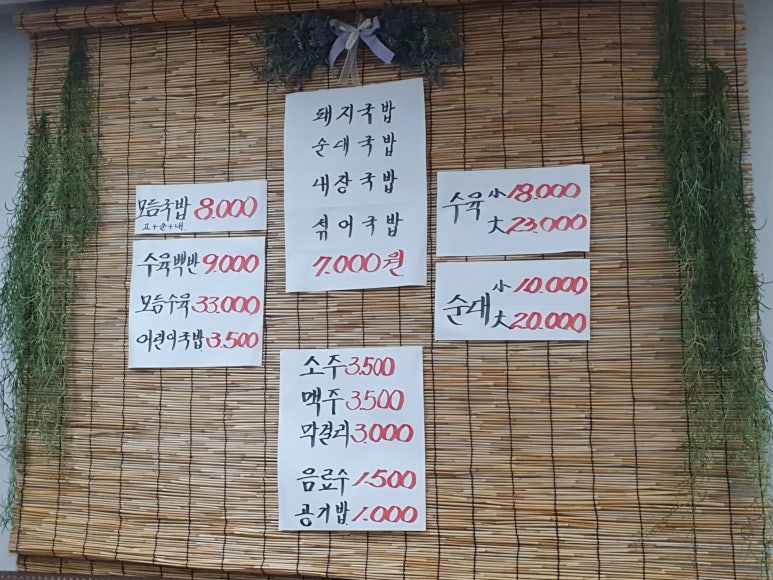 돼지국밥
순대국밥
내장국밥
섞어국밥
7.000원
모듬국밥 8.000
고+순+내
수육백반 9.000
모듬수육 33.000
어린이국밥 3.500
수육 小 18.000
大 23.000
순대 小 10.000
大 20.000
소주 3.500
맥주 3.500
막걸리 3.000
음료수 1.500
공기밥 1.000